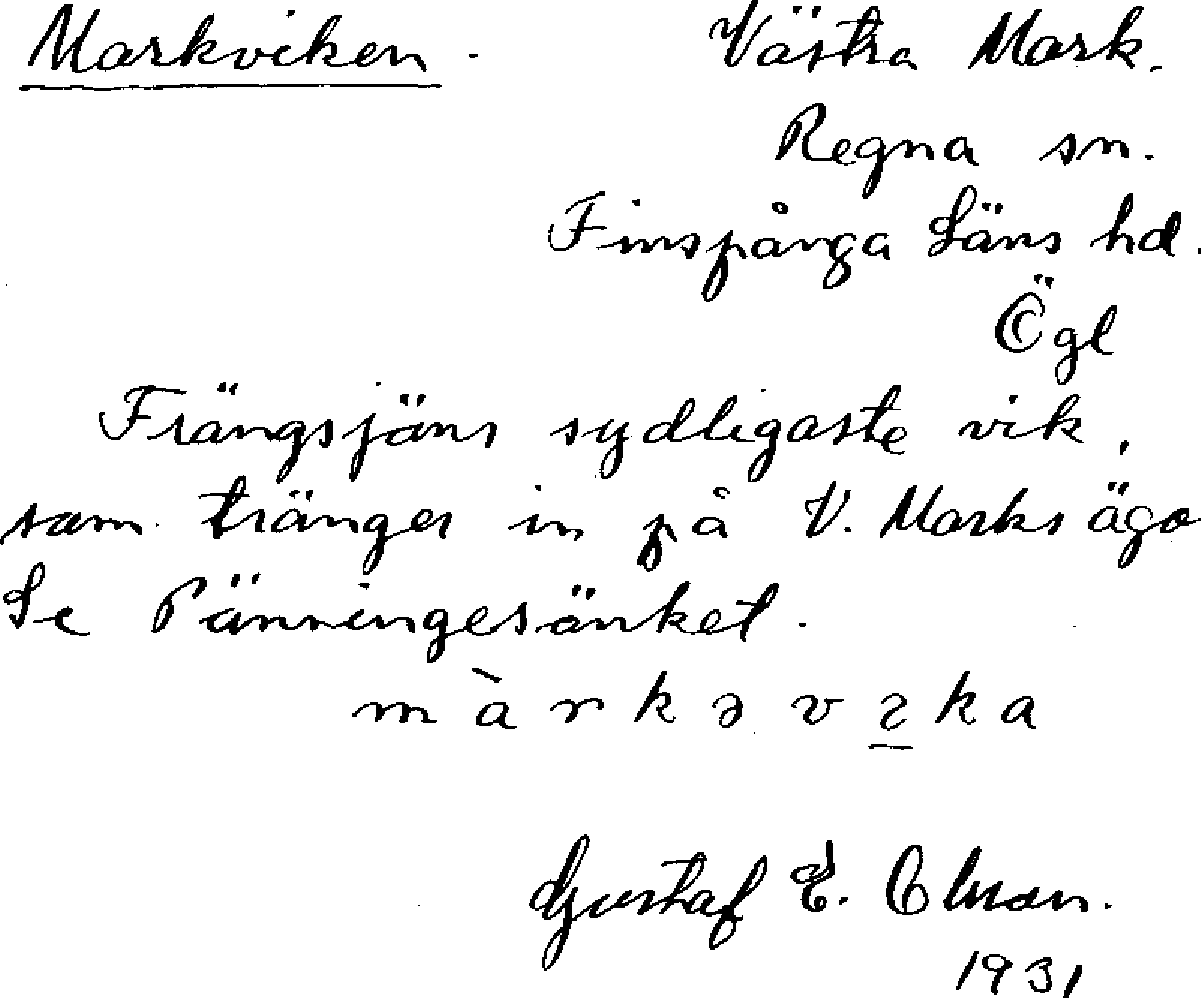 Markviken. Västra Mark.
Regna sn.
Finspånga Läns hd.
Ögl
Frängsjöns sydligaste vik,
som tränger in på V. Marks ägo
Se Pänningesänket.
m à r k ə v ꙅ k a
Gustaf E. Olman.
1931